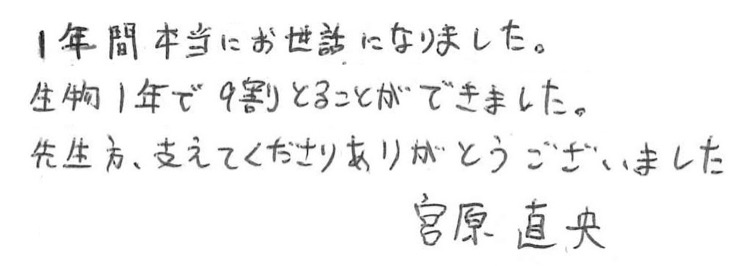 1年間本当にお世話になりました。
生物1年で9割とることができました。
先生方、支えてくださりありがとうございました
宮原直央